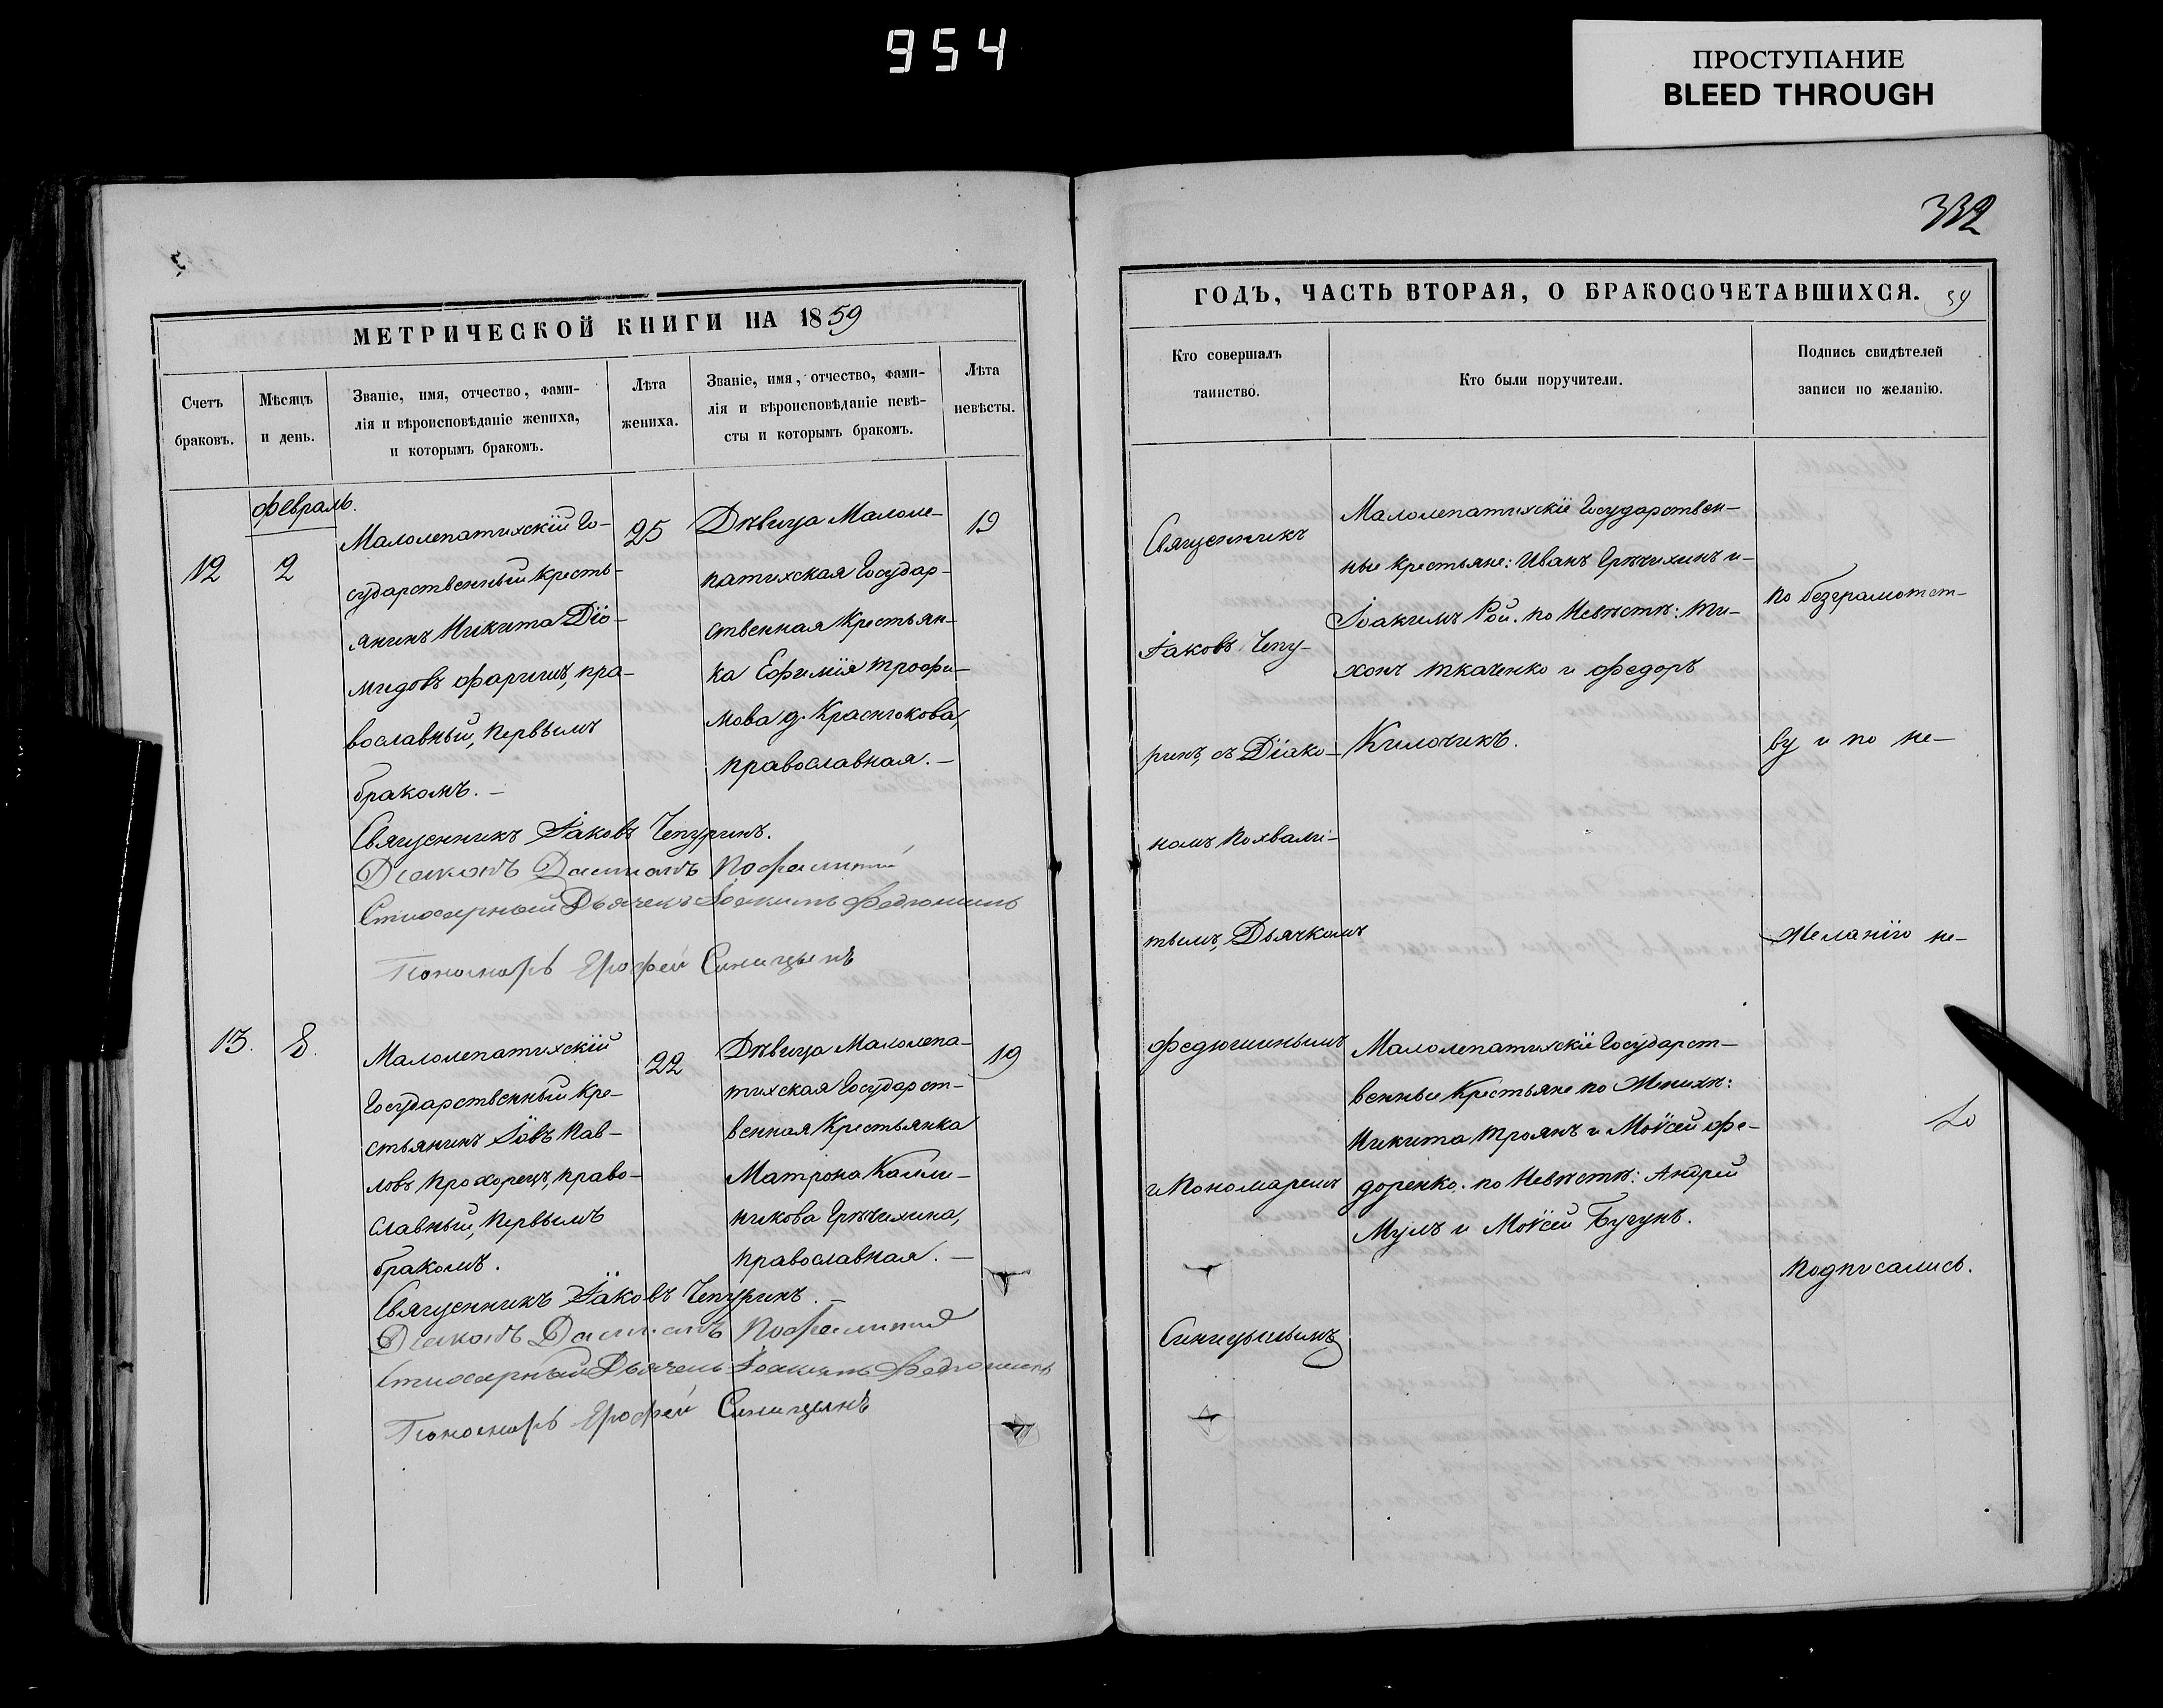 954
ПРОСТУПАНИЕ
BLEED THROUGH
332
МЕТРИЧЕСКОЙ КНИГИ НА 1859
Счетъ браковъ.
Мѣсяцъ и день.
Званіе, имя, отчество, фами-
лія и вѣроисповѣданіе жениха,
и которымъ бракомъ.
Лѣта жениха.
Званіе, имя, отчество, фами-
лія и вѣроисповѣданіе невѣ-
сты и которымъ бракомъ.
Лѣта невѣсты.
февраль.
12
2
Малолепатихскій Го-
сударственный кресть-
янинъ Никита Діо-
мидовъ
пра-
вославный, первымъ
бракомъ. —
25
Дѣвица Малоле-
патихская Государ-
ственная Крестьян-
ка Ефимія Трофи-
мова д. Краснокова,
православная. —
19
Священникъ Іаковъ Чепуринъ.
Діаконъ
Стихарный Дьячекъ Іоакимъ Федюшинъ
Пономарь Ерофей Синицынъ
13.
8.
Малолепатихскій
Государственный Кре-
стьянинъ Іовъ Пав-
ловъ Прохорецъ, право-
славный, первымъ
бракомъ.
22
Дѣвица Малолепа-
тихская Государст-
венная Крестьянка
Матрона Калли-
никова Грѣчихина,
православная. —
19
Священникъ Іаковъ Чепуринъ. —
Діаконъ
Стихарный Дьячекъ Іоакимъ Федюшинъ
Пономарь Ерофей Синицынъ
ГОДЪ, ЧАСТЬ ВТОРАЯ, О БРАКОСОЧЕТАВШИХСЯ.
59
Кто совершалъ
таинство.
Кто были поручители.
Подпись свидѣтелей
записи по желанію.
Священникъ
Іаковъ Чепу-
ринъ, съ Діако-
номъ Похвали-
тымъ, Дьячкомъ
Федюшинымъ
и Пономаремъ
Синицынымъ
Малолепатихскіе Государствен-
ные Крестьяне: Иванъ Грѣчихинъ и
Іоакимъ Рой. по Невѣстѣ: Ти-
хонъ Ткаченко и Федоръ
Килочикъ.
Малолепатихскіе Государст-
венные Крестьяне по Женихѣ:
Никита Троянъ и Моѵсей Фе-
доренко. по Невѣстѣ: Андрей
Мулъ и Моѵсей Бугунъ.
По безграмотст-
ву и по не-
Желанію не-
подписались.